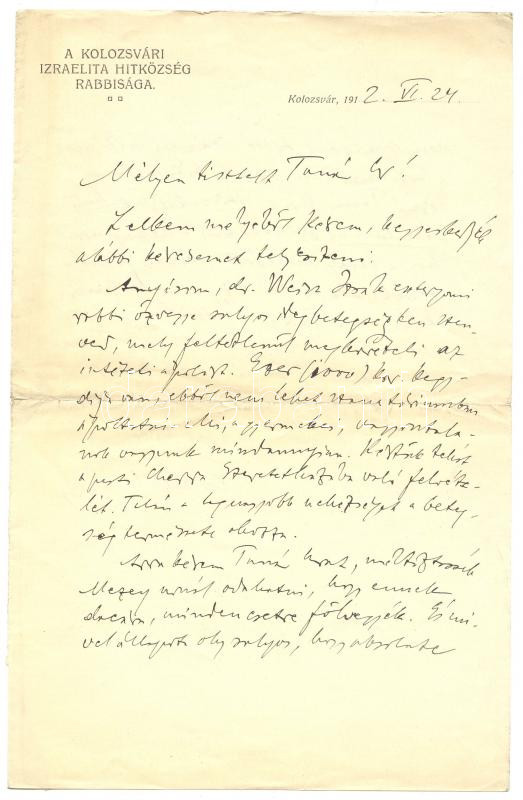 A KOLOZSVÁRI
IZRAELITA HITKÖZSÉG
RABBISÁGA.
Kolozsvár, 1912. VI. 24.
Mélyen tisztelt Tanár Úr!
Lelkem mélyéből kérem, kegyeskedjék
alábbi kérésemet teljesíteni.
Anyósom, dr. Weisz Izsák esztergomi
rabbi özvegye súlyos idegbetegségben szen-
ved, mely feltétlenül megköveteli az
intézeti ápolást. Ezer (1000) kor. kegy-
díja van, ebből nem lehet szanatóriumban
ápoltatni. Mi, a gyermekei, vagyontala-
nok vagyunk mindannyian. Kérjük tehát
a pesti Chevra Szeretetházába való felvéte-
lét. Talán a legnagyobb nehézséget a beteg-
ség természete okozza.
Arra kérem Tanár Urat, méltóztassék
Mezey úrnál odahatni, hogy ennek
dacára, minden esetre fölvegyék. És mi-
vel állapota oly súlyos, hogy absolute